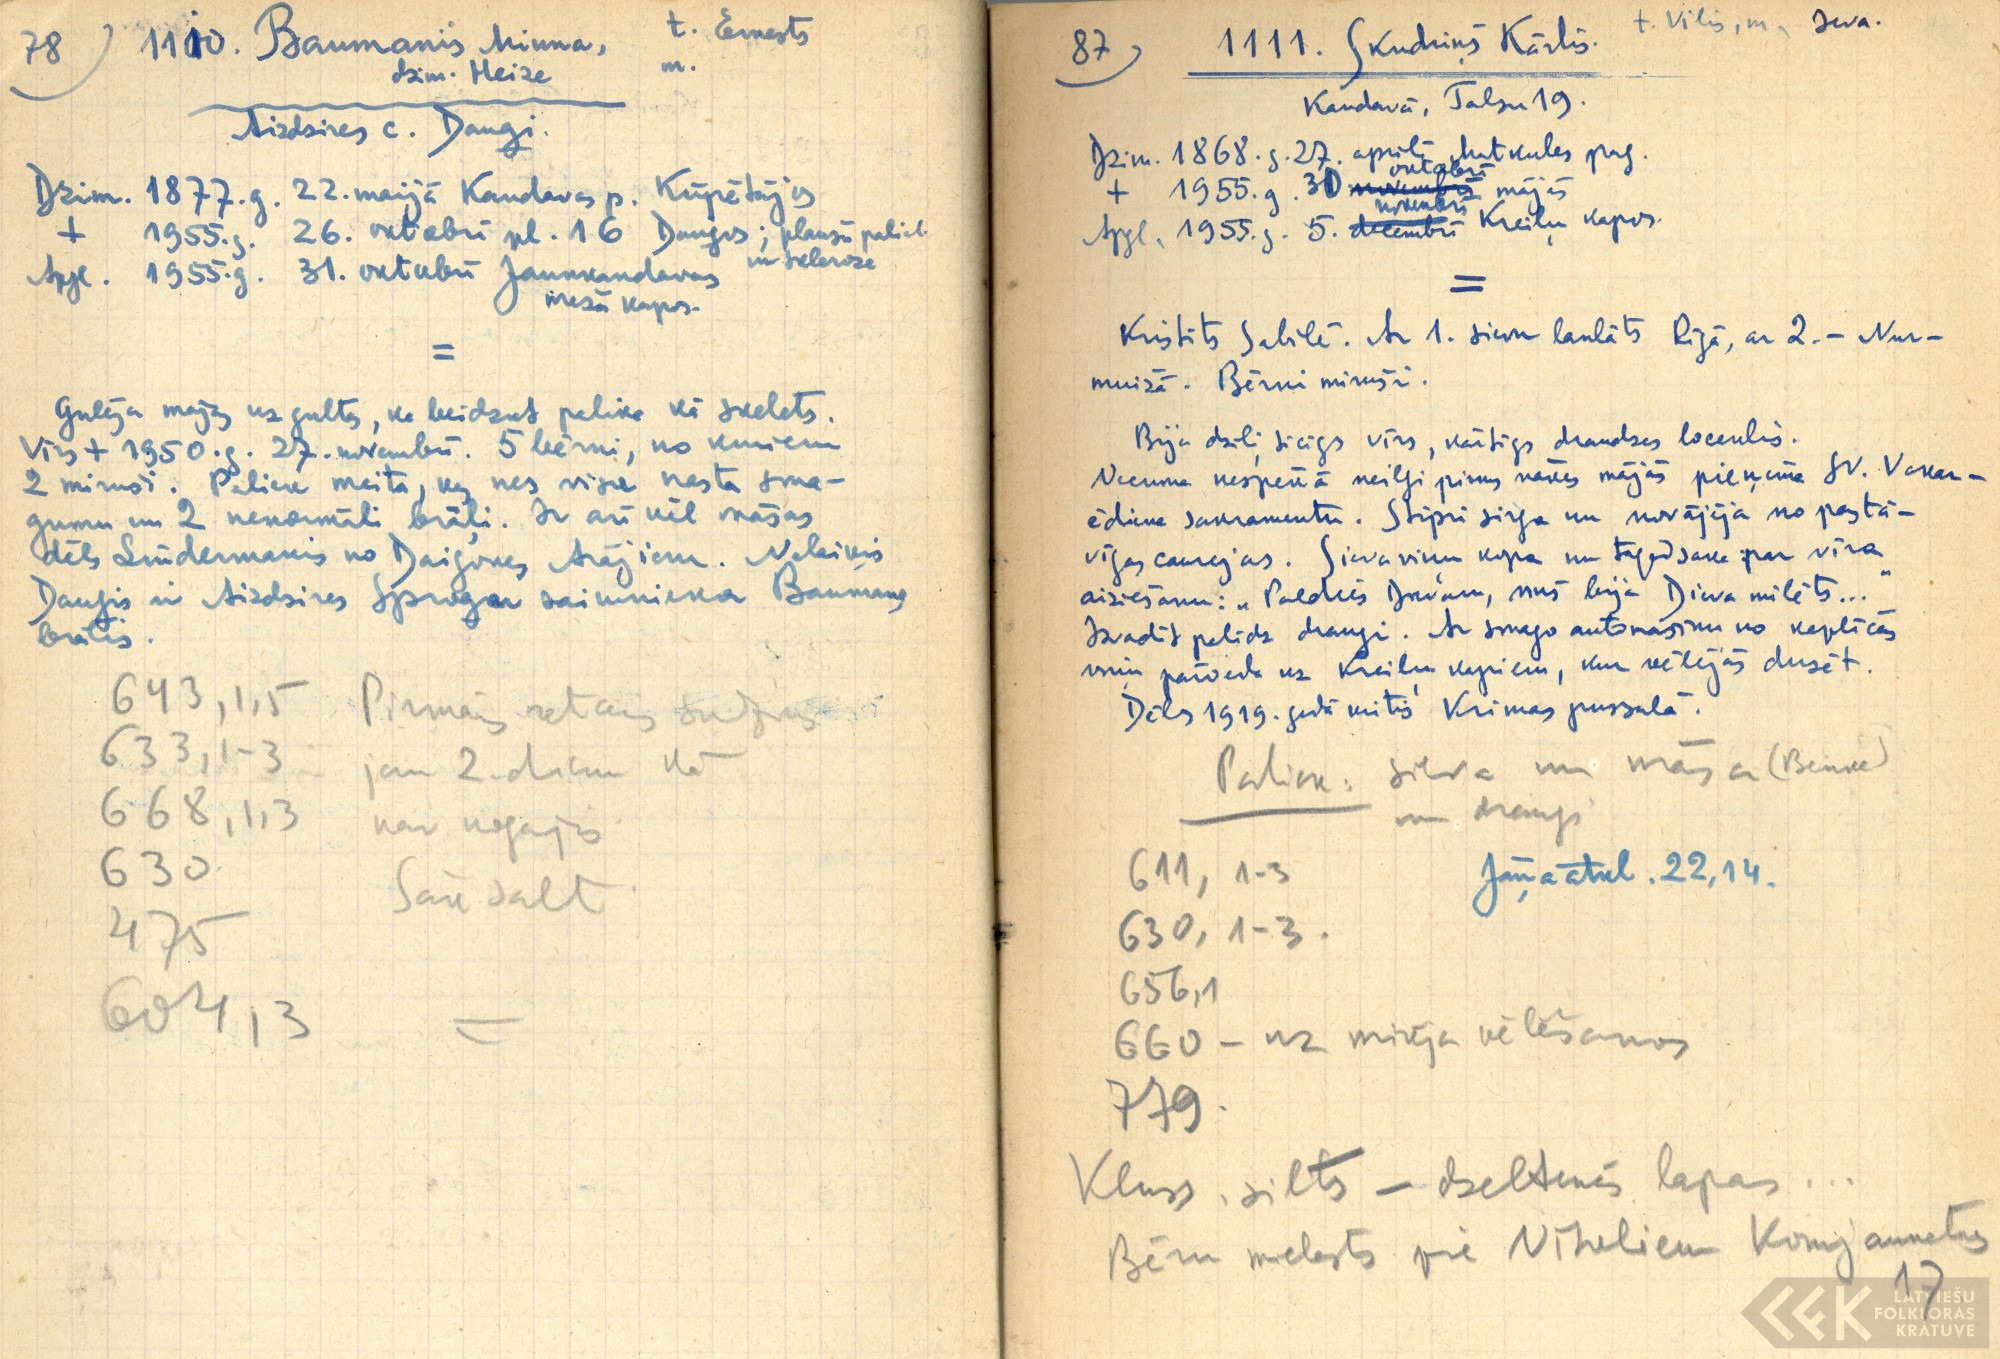 78) 1110. Baumanis Minna, t. Ernests
dzim. Heize m.
Aizdzires c. Daugi.
Dzim. 1877.g. 22. maijā Kandavas p. Kūpētājos
+ 1955.g. 26. oktobrī pl. 16 Daugos; plaušu
un skleroze
Apgl. 1955.g. 31. oktobrī Jaunkandavas
mežā kapos.
=
Gulēja uz gultas, ka beidzot palika kā skelets.
Vīrs + 1950.g. 27. novembrī. 5 bērni, no kuriem
2 miruši. Paliek meita, kas nes visu nasta sma-
gumu un 2 nenormāli brāļi. Ir arī vēl māsas
dēls no Daigones Arājiem. Nelaiķis
Daugis ir Aizdzires saimnieka Baumaņa
brālis.
643,1,5 Pirmais
633,1-3 jau 2. dienu kā
668,1,3 nav
630
475
604,3
87) 1111. Skudriņš Kārlis. t. Vilis, m. Ieva.
Kandavā, Talsu 19.
Dzim. 1868.g. 27. aprīlī Matkules pag.
oktobrī
+ 1955.g. 30 novembrī mājās
novembrī
Apgl. 1955.g. 5. decembrī Kreiļu kapos.
=
Kristīts Sabilē. Ar 1. sievu laulāts Rīgā, ar 2. – Nur-
muižā. Bērni miruši.
Bija dziļi ticīgs vīrs, kārtīgs draudzes loceklis.
Vecuma nespēkā neilgi pirms nāves mājās pieņēma Sv. Vakar-
ēdiena sakramentu. Stipri sirga un novājēja no pastā-
vīgas caurejas. Sieva viņu kopa un tagad saka par vīra
aiziešanu: „Paldies Dievam, viņš bija Dieva mīlēts..."
Izvadīt palīdz draugi. Ar smago automašīnu no kapličas
viņu pārveda uz Kreiļu kapiem, kur vēlējās dusēt.
Dēls 1919. gadā kritis Krimas pussalā.
Paliek: sieva un māsa
un draugi
611, 1-3 Jāņa atkl. 22,14.
630, 1-3.
656,1
660 – uz mirēja vēlēšanos
779.
Kluss, silts – dzeltenās lapas...
Bēru mielasts pie
17
LATVIEŠU
FOLKLORAS
KRĀTUVE